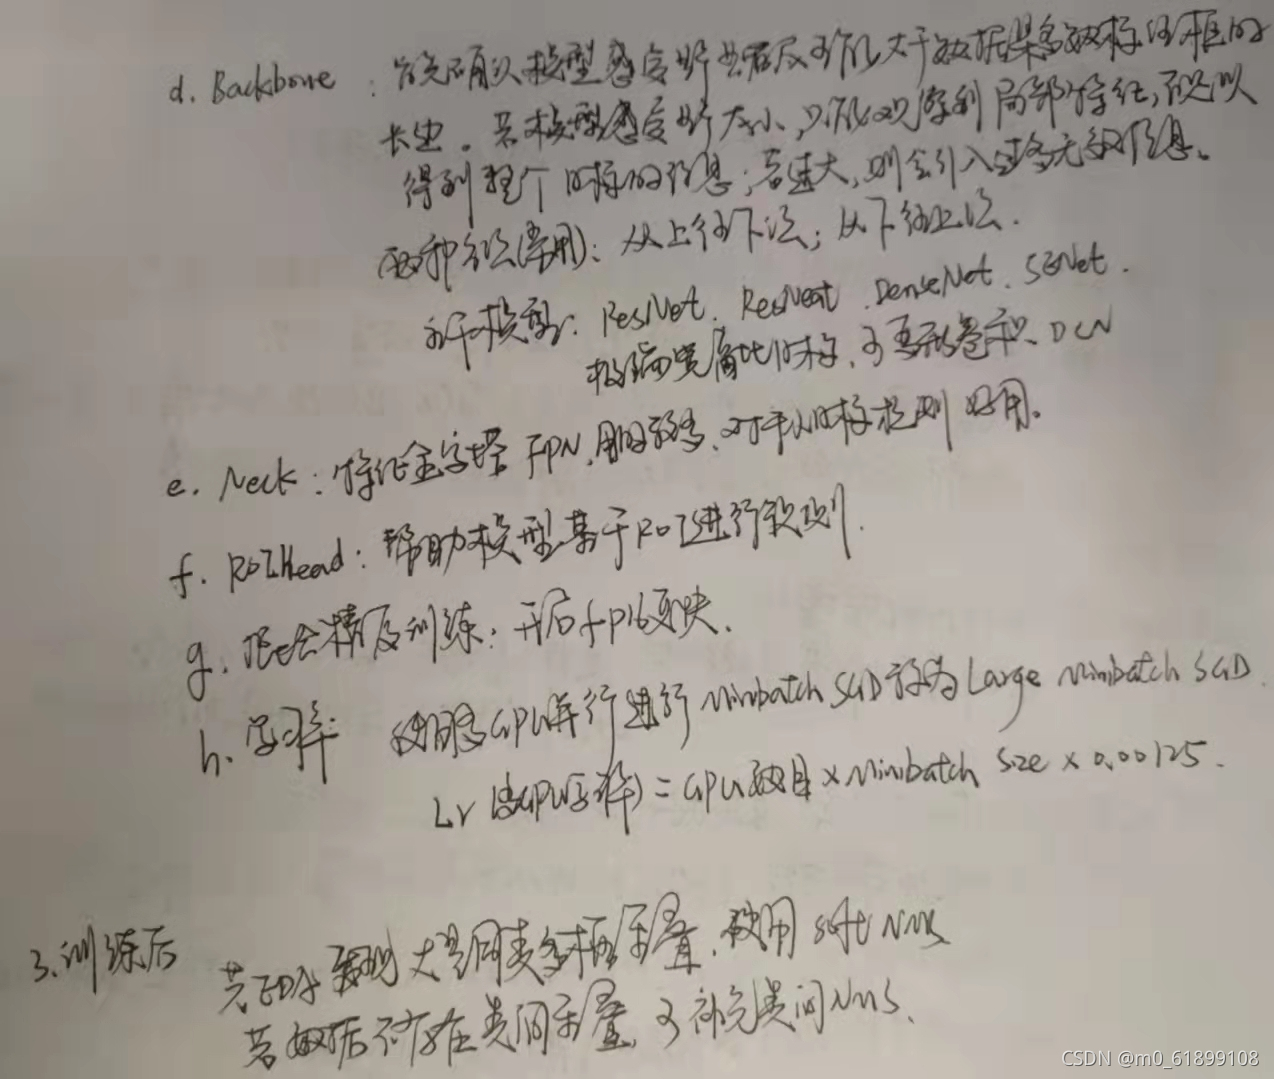 d. Backbone : 首先确认模型感受野
大于数据集多数标注框的
长边。若模型感受野太小,只能观察到局部特征,
得到整个目标的信息;若过大,则会引入过多无效信息。
两种方法(常用): 从上往下法; 从下往上法.
主干模型: ResNet. ResNext. DenseNet. SENet.
极端宽高比目标, 可变形卷积. DCN
e. Neck : 特征金字塔 FPN, 用的较多, 对于小目标检测好用。
f. ROIHead : 帮助模型基于ROI进行预测.
g. 混合精度训练: 开启fp16更快.
h. 学习率 使用多GPU并行进行 Minibatch SGD 称为 Large Minibatch SGD.
Lr = GPU数目 × Minibatch Size × 0.00125.
3. 训练后
若EDA发现大量同类多框重叠, 使用 soft NMS
若数据不存在类间重叠, 可补充类间NMS.
CSDN @m0_61899108